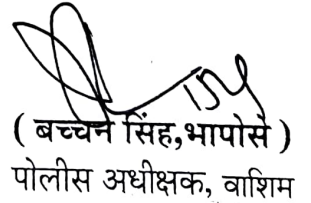 ( बच्चन सिंह,भापोसे )
पोलीस अधीक्षक, वाशिम